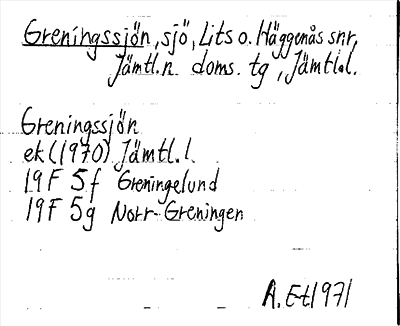 Greningssjön, sjö, Lits o. Häggenås snr,
Jämtl. n. doms. tg, Jämtl. l.
Greningssjön
ek (1970) Jämtl. l.
19F 5f Greningelund
19F 5g Norr-Greningen
A. E-t 1971